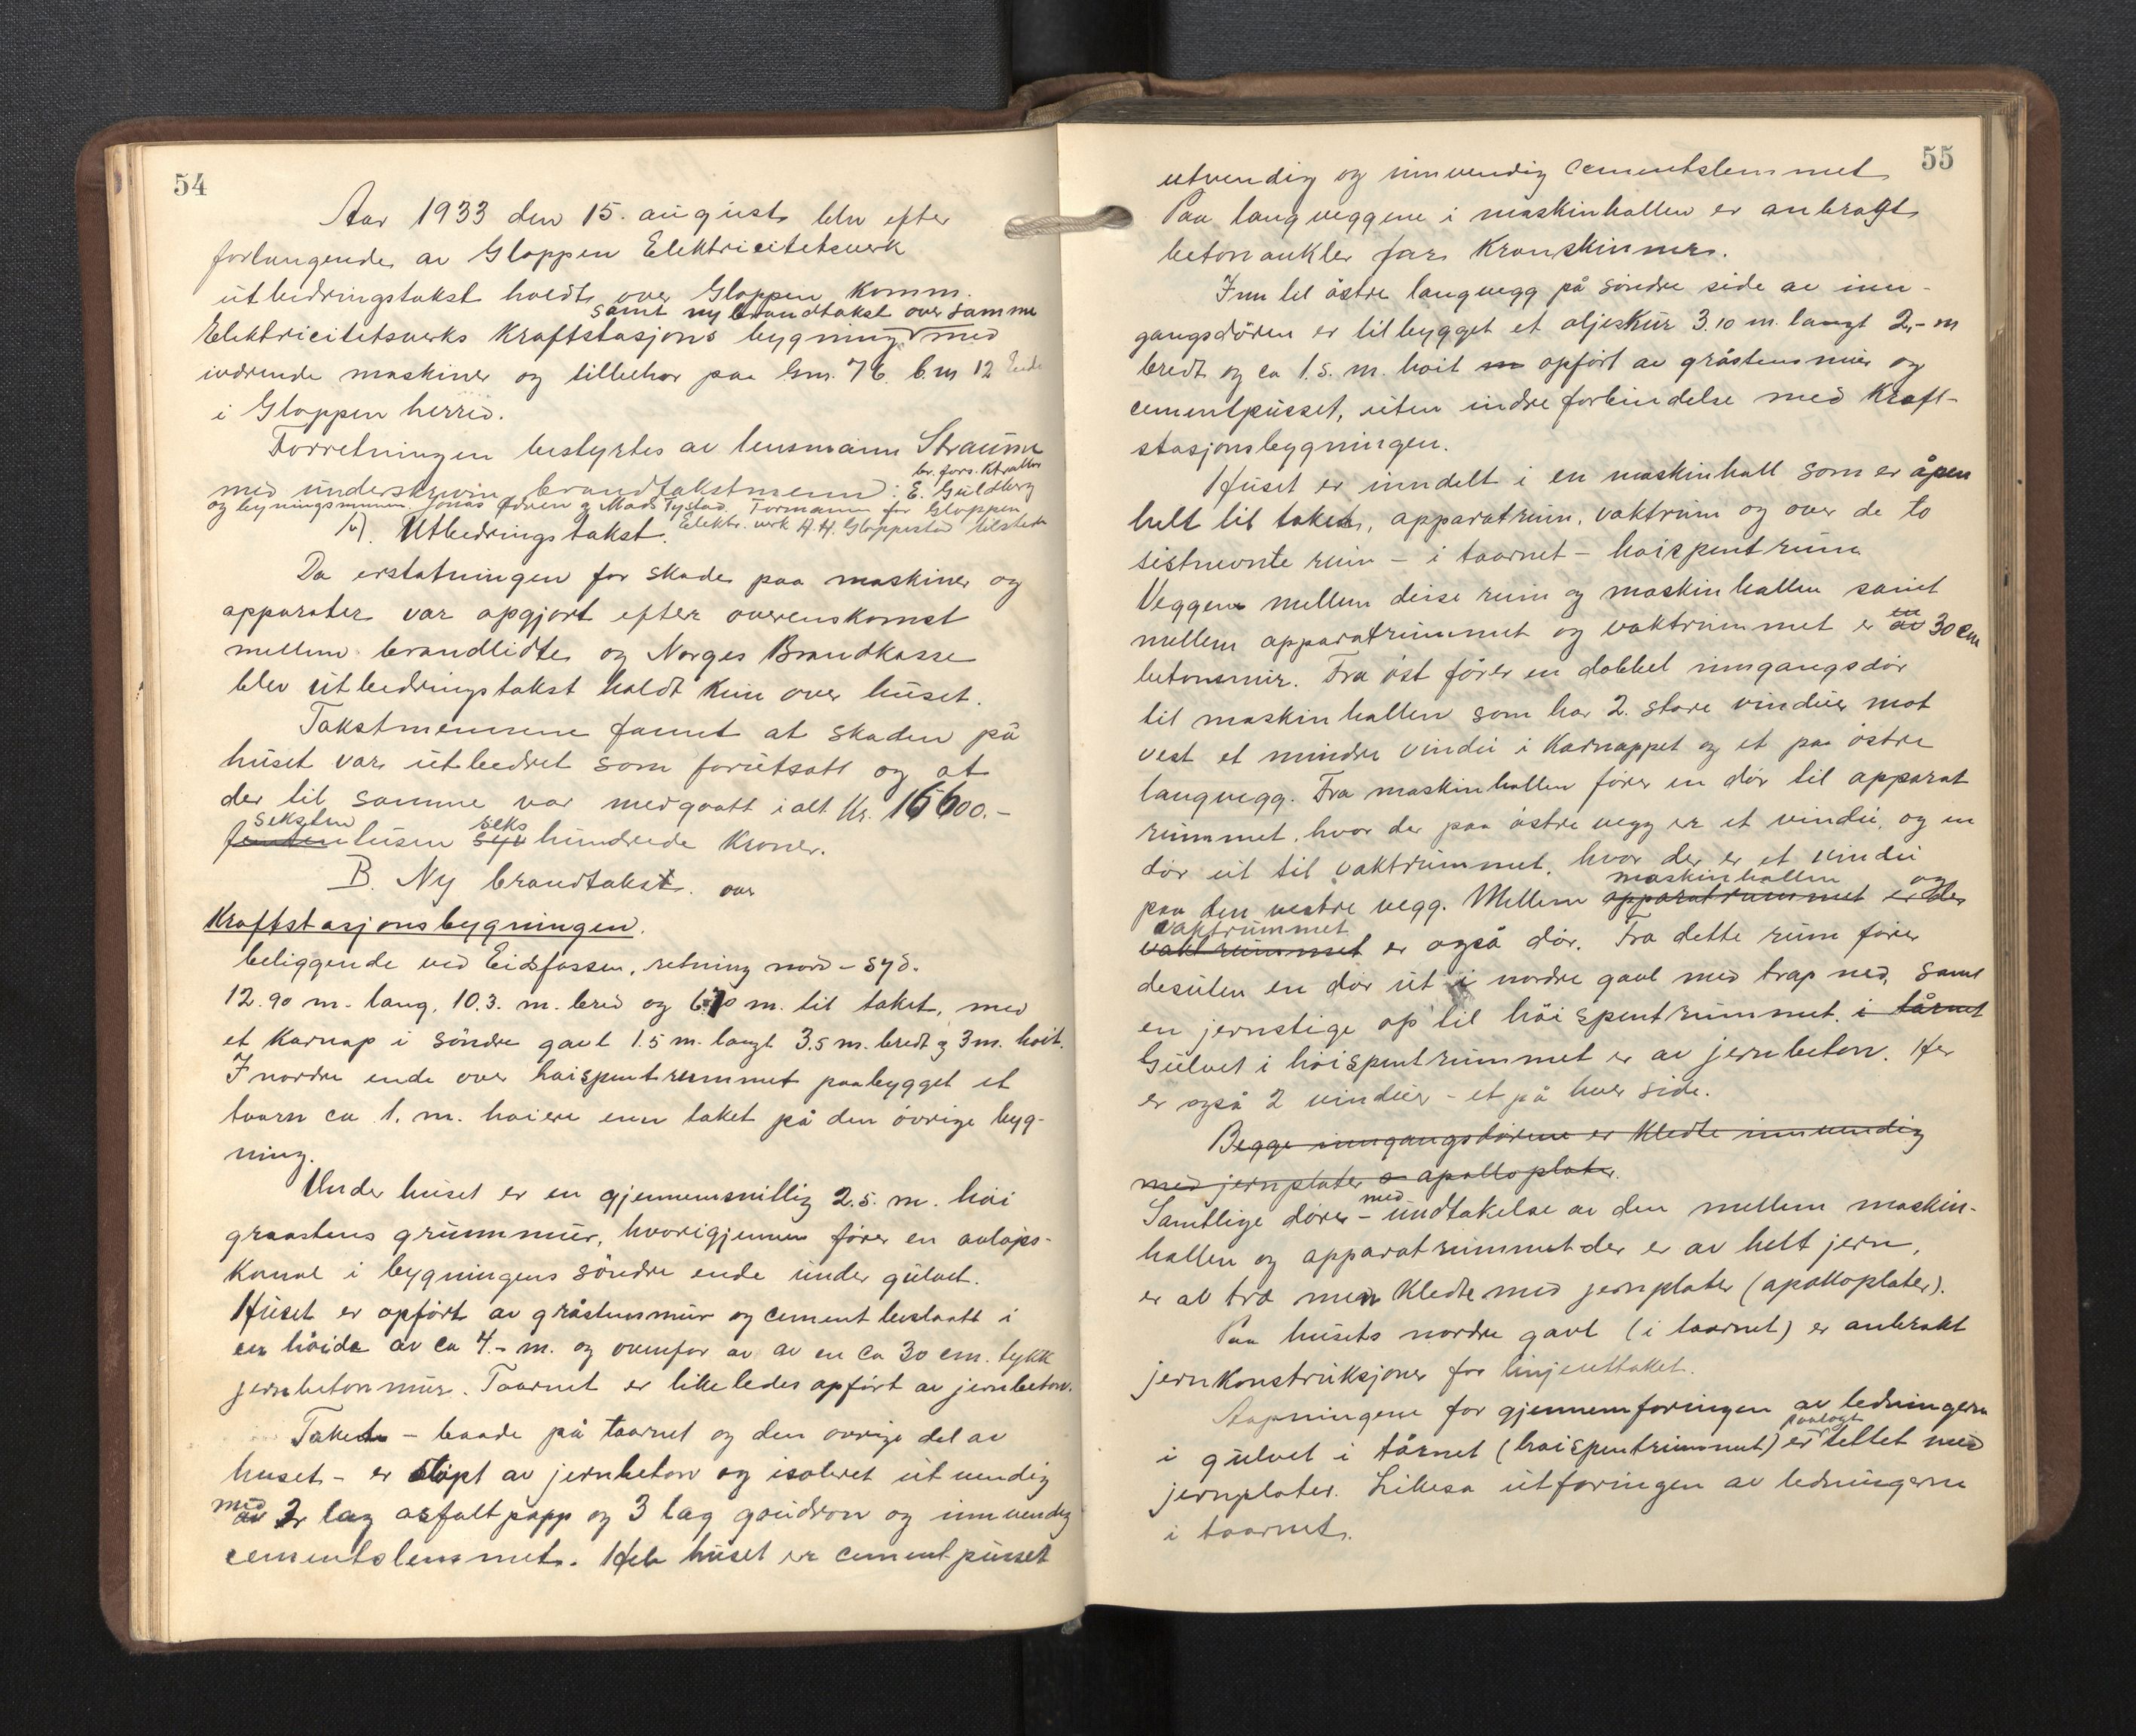 54
Aar 1933 den 15. august blev efter
forlangende av Gloppen Elektricitetsverk
utbedringstakst holdt over Gloppen Komm.
samt ny brandtakst over samme
Elektricitetsverks Kraftstasjons bygning med
indrende maskiner og tilbehør paa Gnr. 76 b.nr 12 Eide
i Gloppen herred.
Forretningen bestyrtes av lensmann Straume
br. fors. Ktroller
med underskrevne brandtakstmenn: E. Guldberg
og bygningsmennen Jonas Øvren og Mads Tystad. Formann for Gloppen
A). Utbedringstakst. Elektr. verk A. H. Gloppestad tilstede
Da erstatningen for skade paa maskiner og
apparater var opgjort efter overenskomst
mellem brandlidte og Norges Brandkasse
blev utbedringstakst holdt kun over huset.
Takstmennene fannt at skaden på
huset var utbedret som forutsatt og at
der til samme var medgaatt i alt Kr. 16600.-
seksten seks
femten tusen syv hundrede Kroner.
B. Ny brandtakst. over
Kraftstasjonsbygningen.
beliggende ved Eidsfossen, retning nord - syd.
12.90 m. lang, 10.3. m. bred og 6.70 m. til taket, med
et Karnap i söndre gavl 1.5 m. langt 3.5 m. bredt og 3 m. hoit.
I nordre ende over hoispentrummet paabygget et
taarn ca 1. m. hoiere enn taket på den óvrige byg-
ning.
Under huset er en gjennemsnittlig 2.5. m. hói
graastens grunnmur, hvorigjennem fórer en avlops-
Kanal i bygningens söndre ende under gulvet.
Huset er opfórt av gråstensmur og cement beslaatt i
en hóide av ca 4.- m. og ovenfor av av en ca 30 cm. tykk
jernbetonmur. Taarnet er likeledes opfórt av jernbeton.
Taket - baade på taarnet og den ovrige del av
huset - er stópt av jernbeton og isoleret utvendig
med
av 2 lag asfaltpapp og 3 lag goudron og innvendig
cementslemmet. Hele huset er cementpusset
55
utvendig og innvendig cementslemmet
Paa langveggene i maskinhallen er anbragt
betonankler for Kranskinner.
Inn til östre langvegg på söndre side av inn-
gangsdóren er tilbygget et oljeskur 3.10 m. langt 2,- m
bredt og ca 1.5. m. hóit m opfórt av gråstensmur og
cementpusset, uten indre forbindelse med Kraft-
stasjonsbygningen.
Huset er inndelt i en maskinhall som er åpen
helt til taket, apparatrum, vaktrum og over de to
sistnevnte rum - i taarnet - hoispentrum
Veggene mellem disse rum og maskinhallen samt
mellem apparatrummet og vaktrummet er av en 30 cm
betonmur. Fra óst fórer en dobbel inngangsdór
til maskinhallen som har 2. store vinduer mot
vest et mindre vindu i Karnappet og et paa óstre
langvegg. Fra maskinhallen fórer en dór til apparat
rummet, hvor der paa óstre vegg er et vindu, og en
dór ut til vaktrummet, hvor der er et vindu
maskinhallen og
paa den vestre vegg. Mellem apparatrummet er der
vaktrummet
vaktrummet er også dór. Fra dette rum fórer
desuten en dór ut i nordre gavl med trap ned, samt
en jernstige op til hói spentrummet. i tårnet
Gulvet i hóispentrummet er av jernbeton. Her
er også 2 vinduer - et på hver side.
Begge inngangsdórene er Kledte innvendig
med jernplater o apolloplater.
Samtlige dórer - med undtakelse av den mellem maskin-
hallen og apparatrummet der er av helt jern,
er av tre men Kledte med jernplater (apolloplater).
Paa husets nordre gavl (i taarnet) er anbrakt
jernkonstruksjoner for linjeuttaket.
Aapningene for gjennemforingen av ledningerne
paalagt
i gulvet i tårnet (hoispentrummet) er tettet med
jernplater. Likesa utforingen av ledningerne
i taarnet.